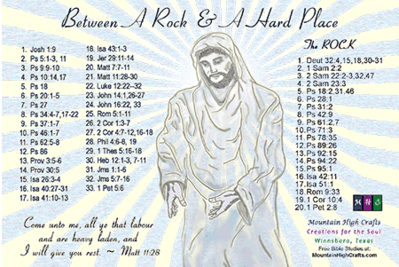 Between A Rock & A Hard Place
1. Josh 1:9
2. Ps 5:1-3, 11
3. Ps 9:9-10
4. Ps 10:14,17
5. Ps 18
6. Ps 20:1-5
7. Ps 27
8. Ps 34:4-7,17-22
9. Ps 37:1-7
10. Ps 46:1-7
11. Ps 62:5-8
12. Ps 86
13. Prov 3:5-6
14. Prov 30:5
15. Isa 26:3-4
16. Isa 40:27-31
17. Isa 41:10-13
18. Isa 43:1-3
19. Jer 29:11-14
20. Matt 7:7-11
21. Matt 11:28-30
22. Luke 12:22–32
23. John 14:1,26-27
24. John 16:22, 33
25. Rom 5:1-11
26. 2 Cor 1:3-7
27. 2 Cor 4:7-12,16-18
28. Phil 4:6-8, 19
29. 1 Thes 5:16-18
30. Heb 12:1-3, 7-11
31. Jms 1:1-6
32. Jms 5:7-16
33. 1 Pet 5:6
The ROCK
1. Deut 32:4,15,18,30-31
2. 1 Sam 2:2
3. 2 Sam 22:2-3,32,47
4. 2 Sam 23:3
5. Ps 18:2,31,46
6. Ps 28:1
7. Ps 31:2
8. Ps 42:9
9. Ps 61:2,7
10. Ps 71:3
11. Ps 78:35
12. Ps 89:26
13. Ps 92:15
14. Ps 94:22
15. Ps 95:1
16. Isa 42:11
17. Isa 51:1
18. Rom 9:33
19. 1 Cor 10:4
20. 1 Pet 2:8
M H C
Come unto me, all ye that labour
and are heavy laden, and
I will give you rest. ~ Matt 11:28
Mountain High Crafts
Creations for the Soul
Winnsboro, Texas
Free Bible Studies at:
MountainHighCrafts.com